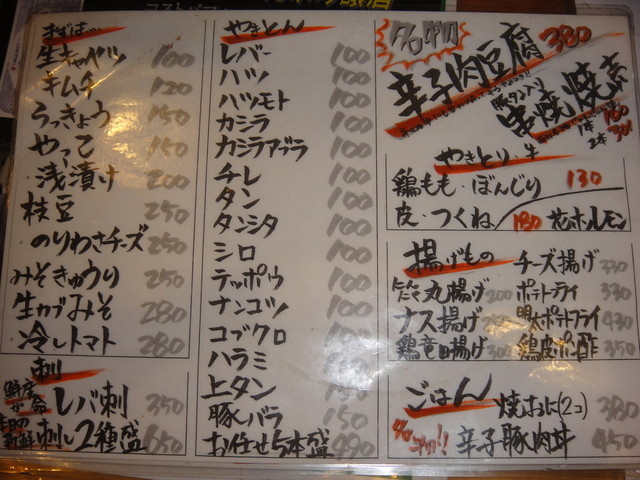 まずは…
生キャベツ 100
キムチ 120
らっきょう 150
やっこ 150
浅漬け 200
枝豆 250
のりわさチーズ 250
みそきゅうり 250
生カブみそ 280
冷しトマト 280
刺
鮮度が命
レバ刺 350
刺し2種盛 650
やきとん
レバー 100
ハツ 100
ハツモト 100
カシラ 100
カシラアブラ 100
チレ 100
タン 100
タンシタ 100
シロ 100
テッポウ 100
ナンコツ 100
コブクロ 100
ハラミ
上タン
豚レバラ 150
お任せ5本盛 490
名物
辛子肉豆腐 380
串焼
やきとり・牛
鶏もも・ぼんじり 130
皮・つくね 180 花ホルモン
揚げもの
チーズ揚げ 330
竹丸揚げ 200
ポテトフライ 330
ナス揚げ
明太ポテトフライ 430
鶏竜田揚げ 300
鶏皮ポン酢 350
ごはん
焼おにぎり(2コ) 380
辛子豚肉丼 450